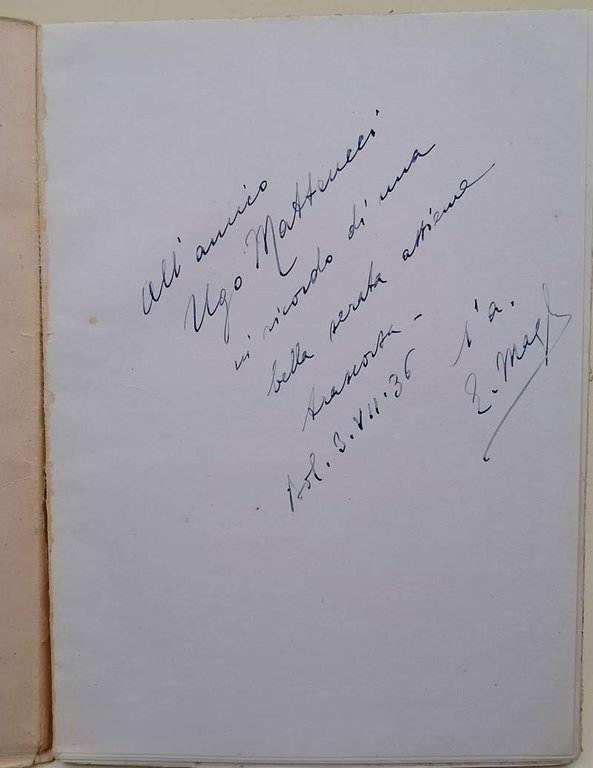 All'amico
Ugo Matteucci
in ricordo di una
bella serata assieme
trascorsa -
Bol. 3.VII.36
l'a.
E. Magl